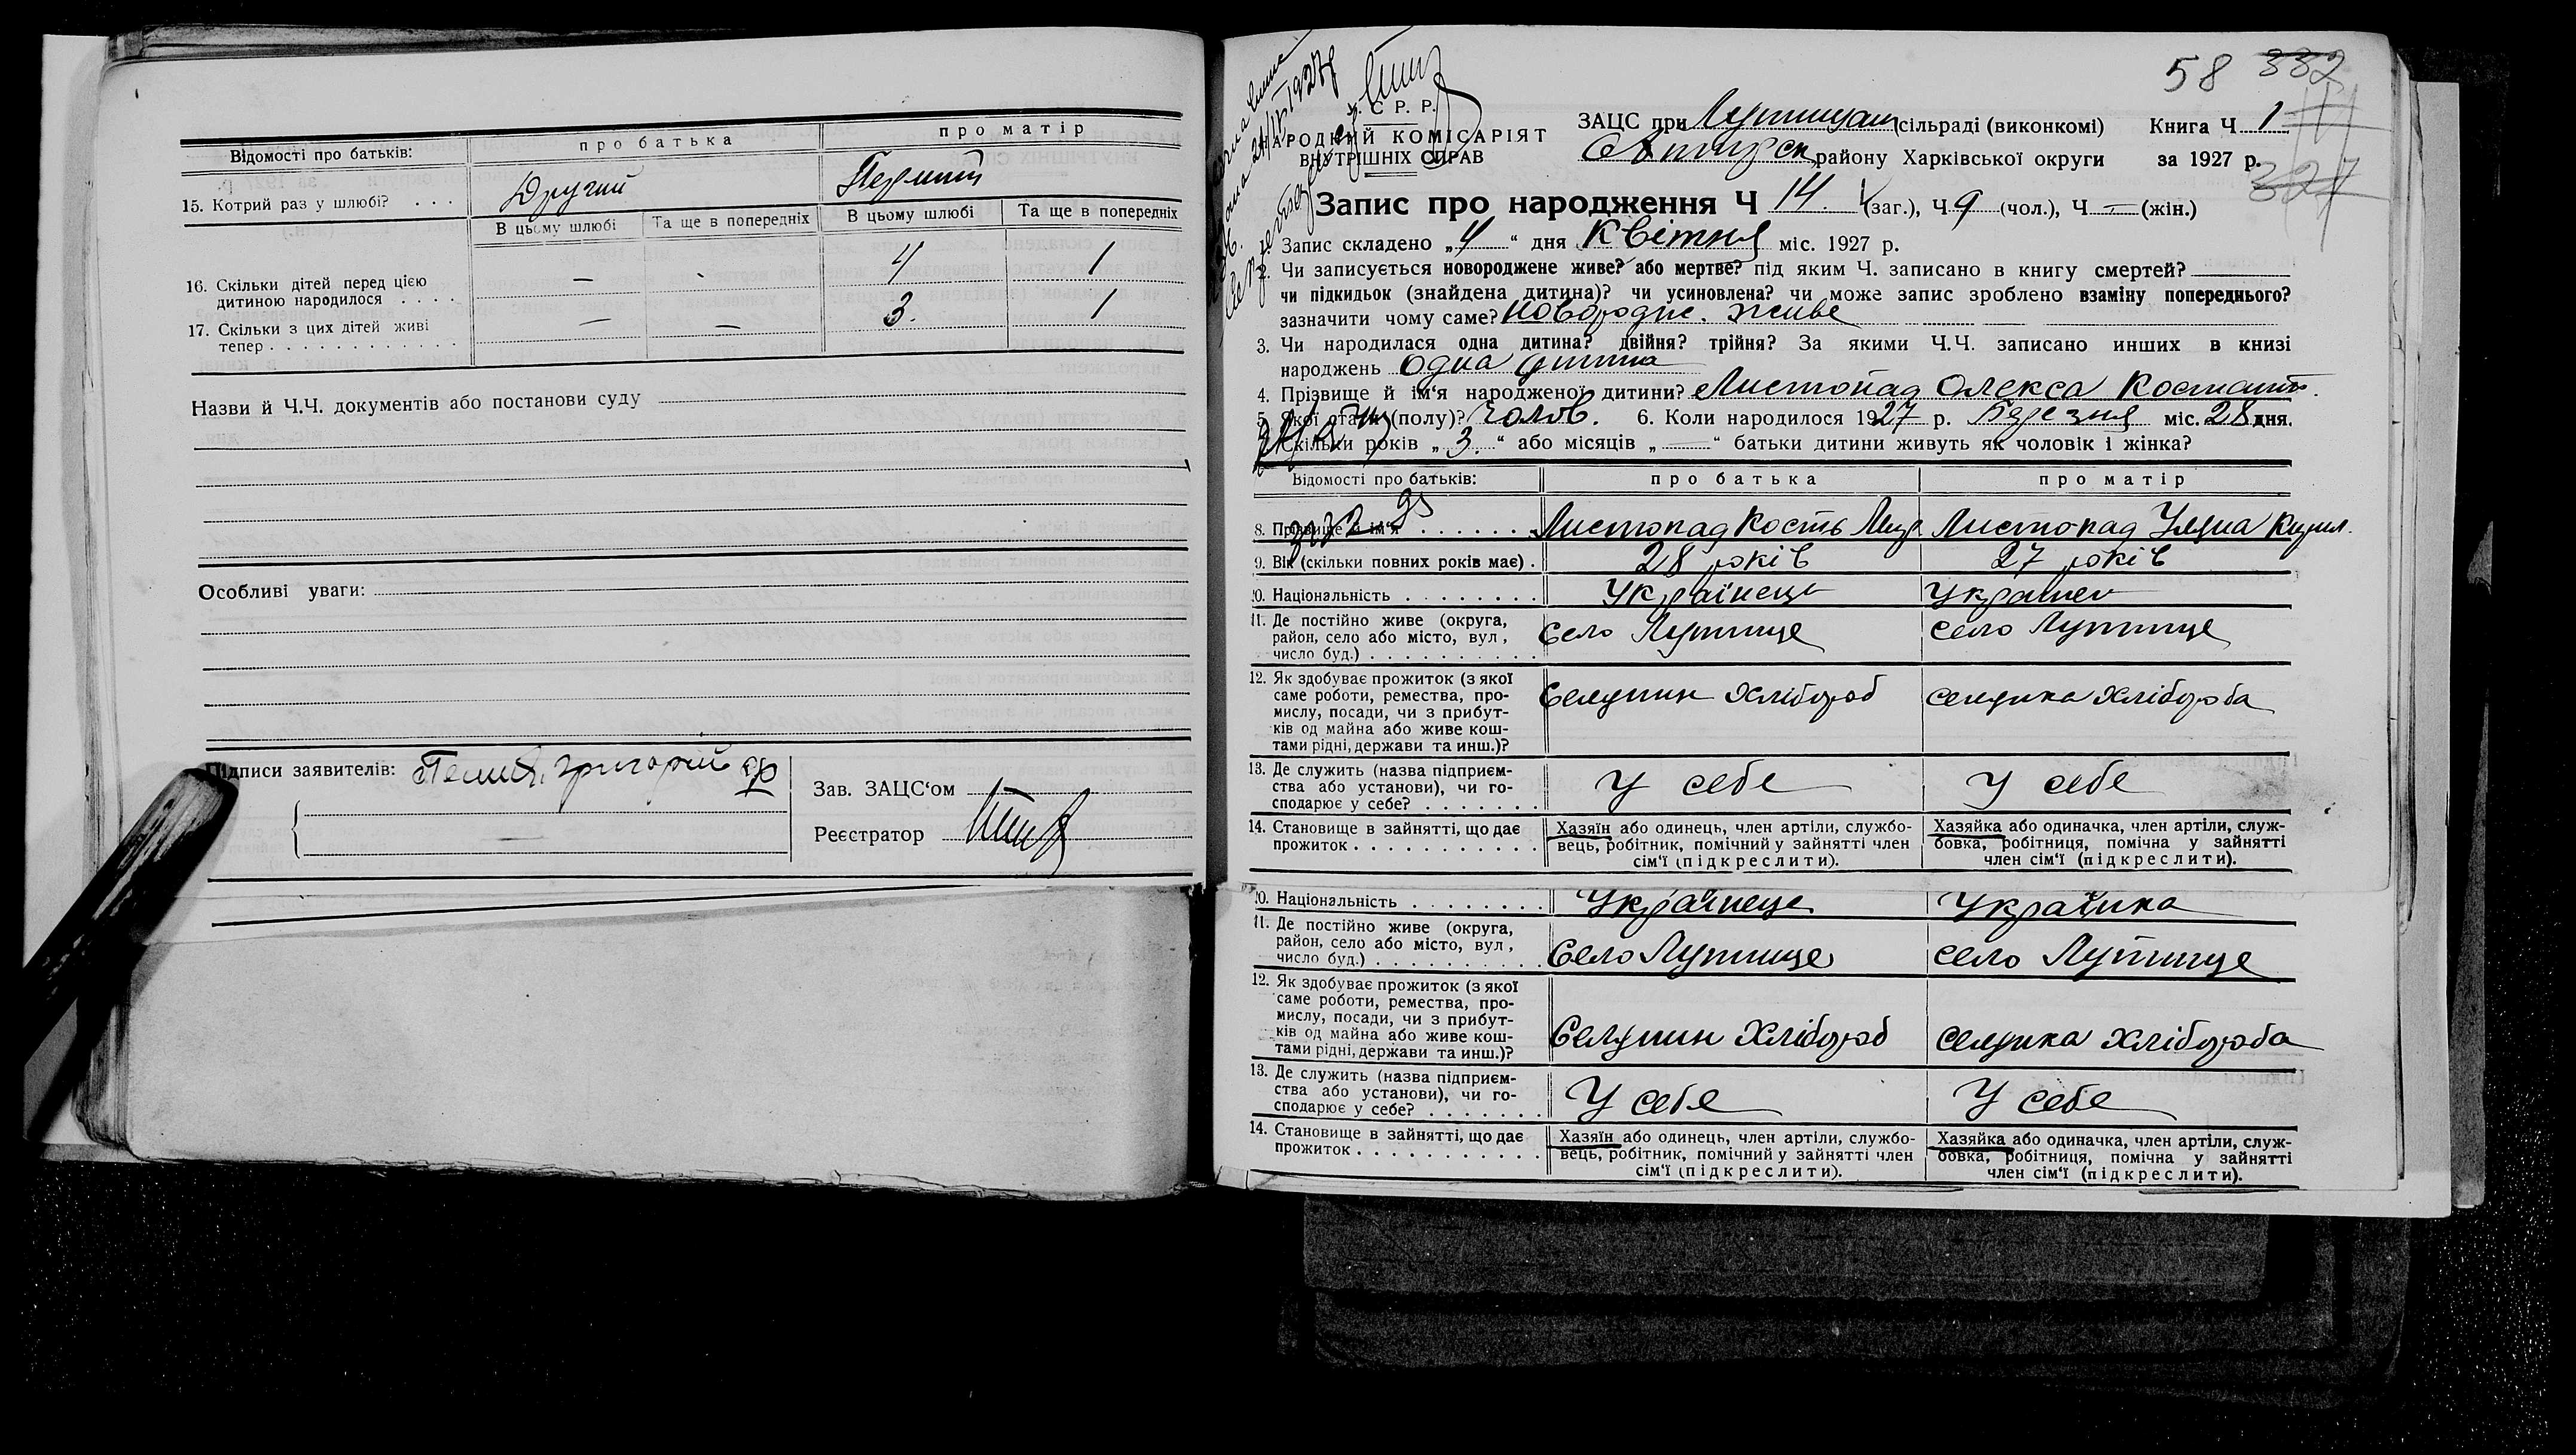 Відомості про батьків:
про батька
про матір
15. Котрий раз у шлюбі? . . .
Другий
Перший
В цьому шлюбі
Та ще в попередніх
В цьому шлюбі
Та ще в попередніх
16. Скільки дітей перед цією
дитиною народилося . . . .
—
4
1
17. Скільки з цих дітей живі
тепер . . . . . . . . . . . .
—
—
3.
1
Назви й Ч.Ч. документів або постанови суду
Особливі уваги:
Підписи заявителів:
Григорий
Зав. ЗАЦС‘ом
Реєстратор
58 332
327
С. Р. Р.
НАРОДНІЙ КОМІСАРІЯТ
ВНУТРІШНІХ СПРАВ
ЗАЦС при (сільраді (виконкомі) Книга Ч 1
району Харківської округи за 1927 р.
Запис про народження Ч 14. (заг.), Ч 9 (чол.), Ч — (жін.)
Запис складено „4“ дня Квітня міс. 1927 р.
2. Чи записується новороджене живе? або мертве? під яким Ч. записано в книгу смертей?
чи підкидьок (знайдена дитина)? чи усиновлена? чи може запис зроблено взаміну попереднього?
зазначити чому саме? живе
3. Чи народилася одна дитина? двійня? трійня? За якими Ч.Ч. записано инших в книзі
народжень одна дитина
4. Прізвище й ім‘я народженої дитини? Листопад Олекса
5. Якої статі (полу)? чолов. 6. Коли народилося 1927 р. Березня міс. 28 дня.
Скільки років „3.“ або місяців „—“ батьки дитини живуть як чоловік і жінка?
Відомості про батьків:
про батька
про матір
8. Прізвище й ім‘я . . . . . . .
Листопад Кость
Листопад Уляна Кирил.
9. Вік (скільки повних років має) .
28 років
27 років
10. Національність . . . . . . . .
Українець
11. Де постійно живе (округа,
район, село або місто, вул,
число буд.) . . . . . . . . . .
село Лутище
село Лутище
12. Як здобуває прожиток (з якої
саме роботи, ремества, про-
мислу, посади, чи з прибут-
ків од майна або живе кош-
тами рідні, держави та инш.)?
Селянин Хлібороб
селянка Хлібороба
13. Де служить (назва підприєм-
ства або установи), чи го-
сподарює у себе? . . . . . . .
У себе
У себе
14. Становище в зайнятті, що дає
прожиток . . . . . . . . . . . .
Хазяїн або одинець, член артіли, службо-
вець, робітник, помічний у зайнятті член
сім‘ї (підкреслити).
Хазяйка або одиначка, член артіли, служ-
бовка, робітниця, помічна у зайнятті
член сім‘ї (підкреслити).
10. Національність . . . . . . . .
Українець
Українка
11. Де постійно живе (округа,
район, село або місто, вул,
число буд.) . . . . . . . . . .
Село Лутище
село Лутище
12. Як здобуває прожиток (з якої
саме роботи, ремества, про-
мислу, посади, чи з прибут-
ків од майна або живе кош-
тами рідні, держави та инш.)?
Селянин Хлібороб
селянка Хлібороба
13. Де служить (назва підприєм-
ства або установи), чи го-
сподарює у себе? . . . . . . .
У себе
У себе
14. Становище в зайнятті, що дає
прожиток . . . . . . . . . . . .
Хазяїн або одинець, член артіли, службо-
вець, робітник, помічний у зайнятті член
сім‘ї (підкреслити).
Хазяйка або одиначка, член артіли, служ-
бовка, робітниця, помічна у зайнятті
член сім‘ї (підкреслити).